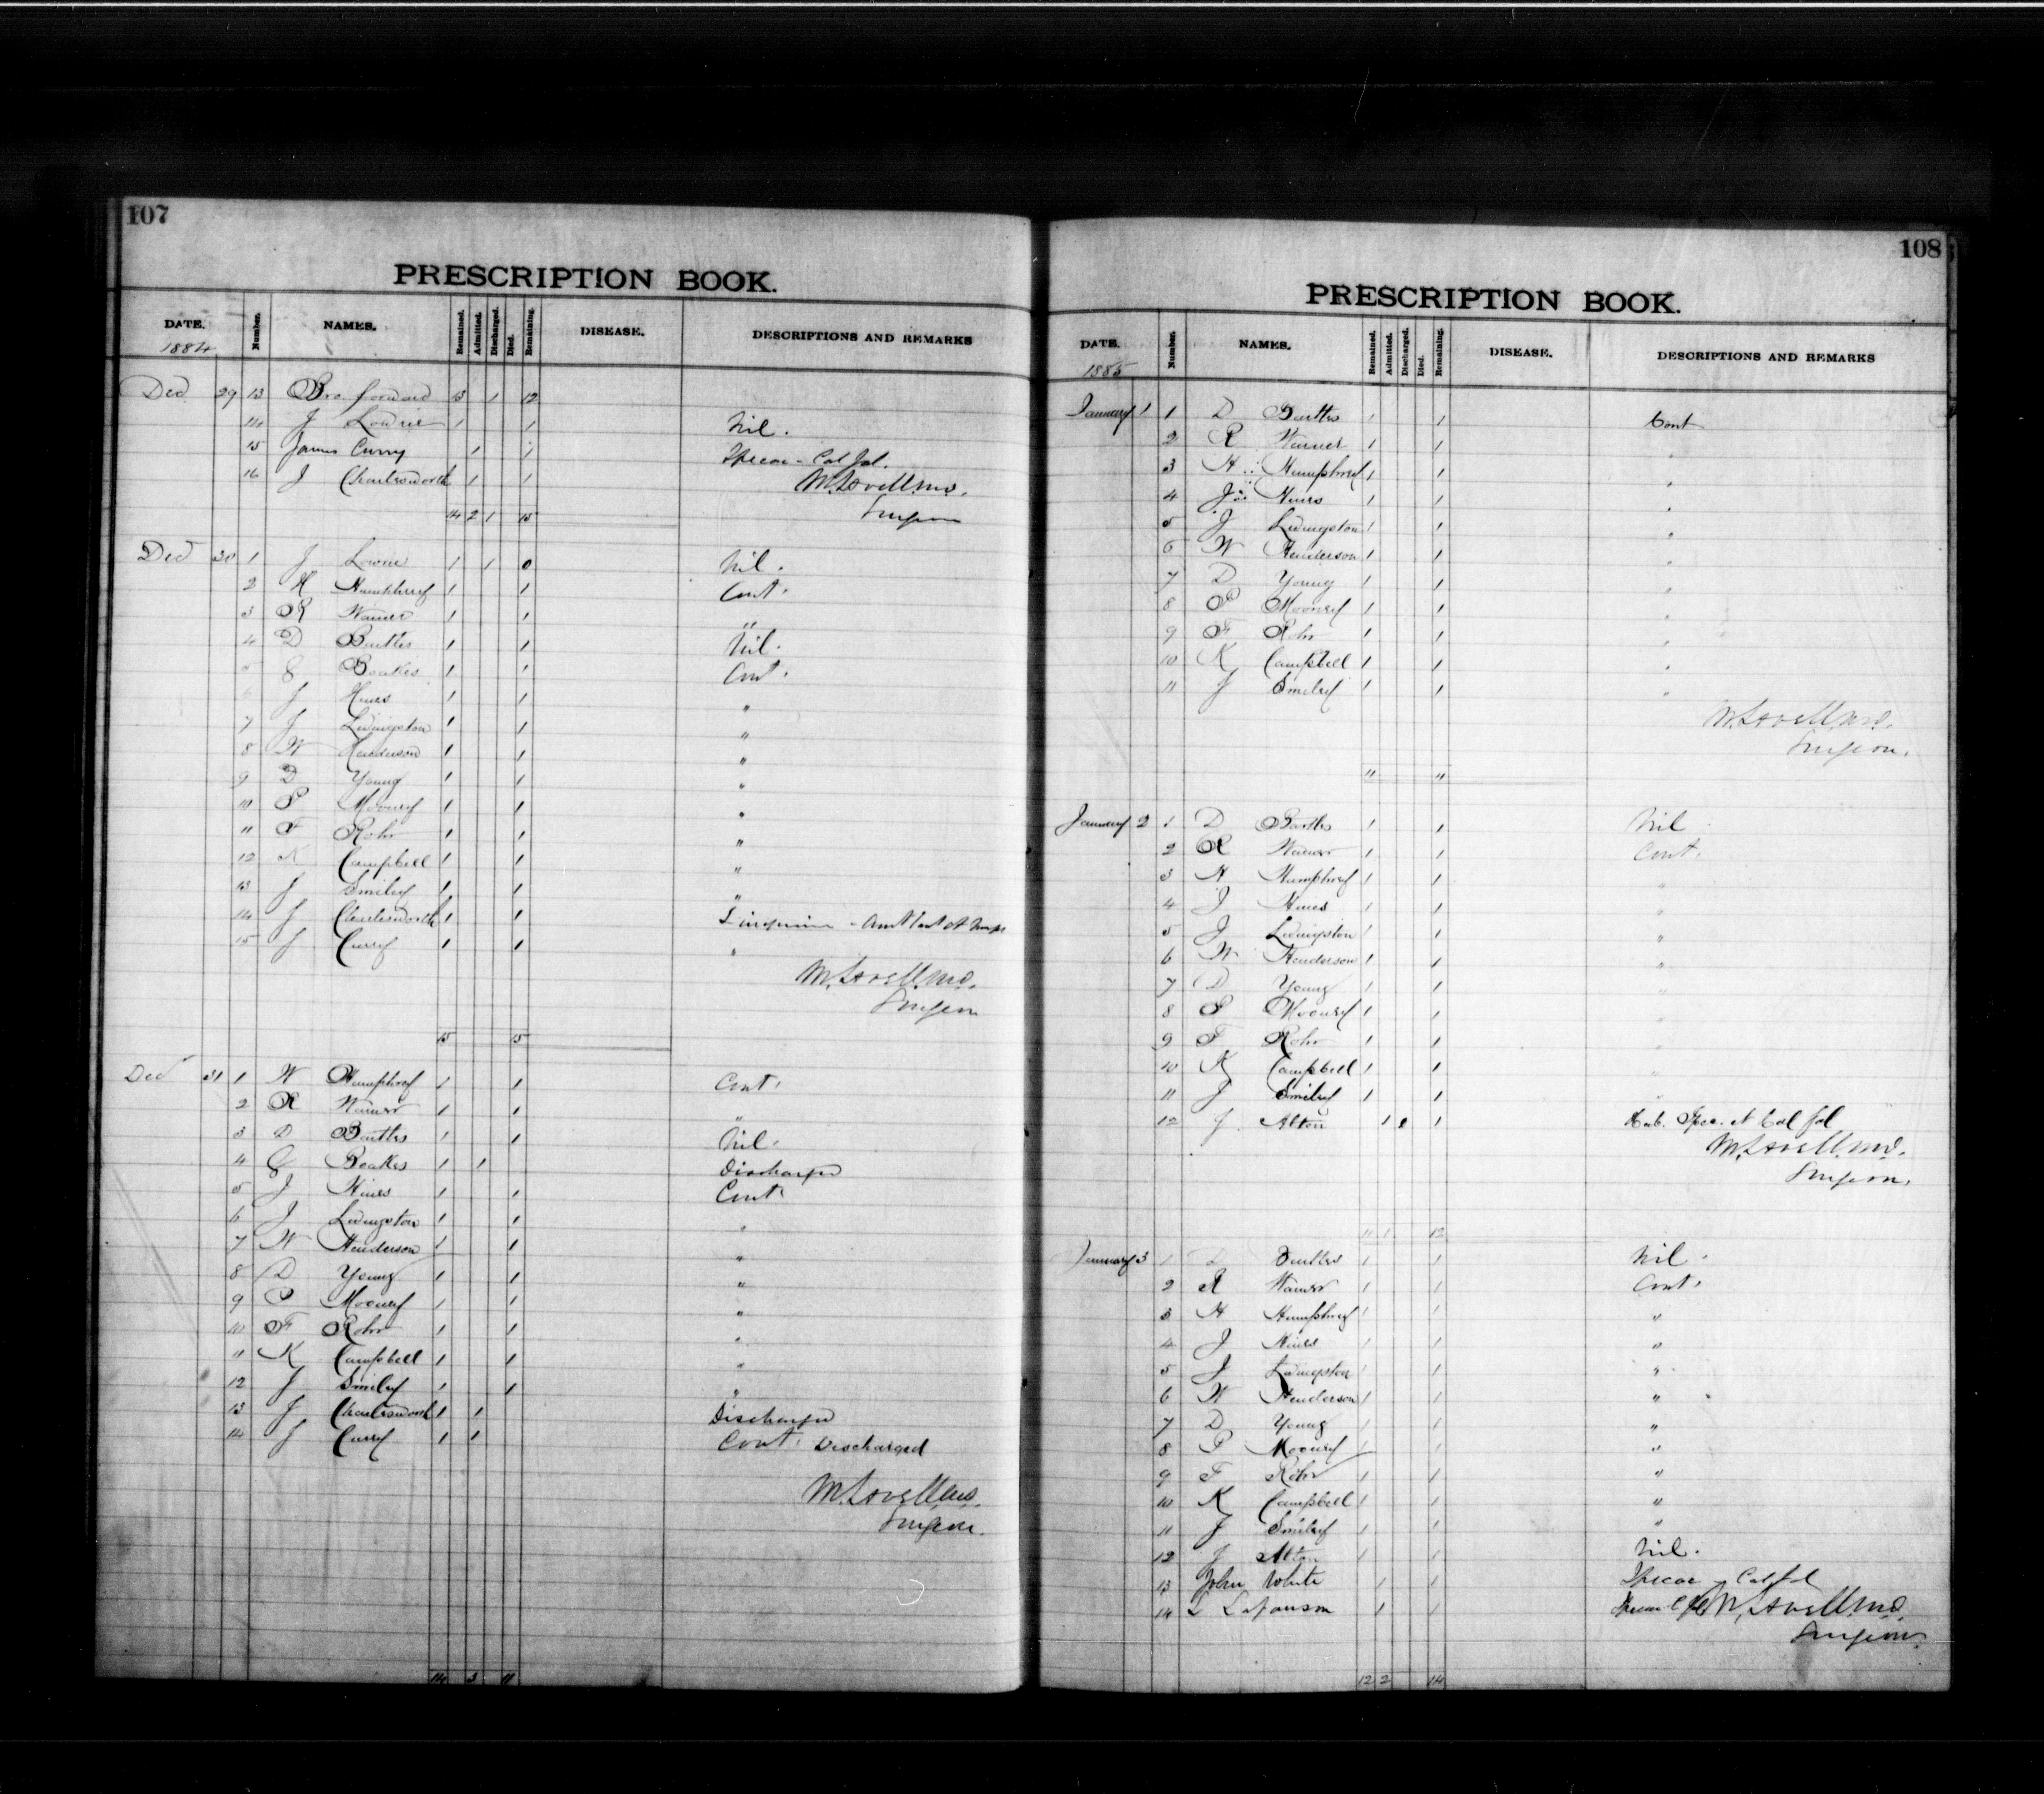 107
PRESCRIPTION BOOK.
DATE. Number. NAMES. Remained. Admitted. Discharged. Died. Remaining. DISEASE. DESCRIPTIONS AND REMARKS
1884
Dec 29 13 Bro forward 13 1 12
14 J Lowrie 1 1 Nil.
15 James Curry 1 1 Ipecac - Cal Jal.
16 J Charlesworth 1 1 M. Lavell M.D.
14 2 1 15 Surgeon
Dec 30 1 J Lowrie 1 1 0 Nil.
2 H Humphrey 1 1 Cont.
3 R Warner 1 1 "
4 D Buttles 1 1 Nil.
5 G Boakes 1 1 Cont.
6 J Hines 1 1 "
7 J Livingston 1 1 "
8 W Henderson 1 1 "
9 D Young 1 1 "
10 P Mooney 1 1 "
11 F Rohr 1 1 "
12 K Campbell 1 1 "
13 J Smiley 1 1 "
14 J Charlesworth 1 1
15 J Curry 1 1 "
M. Lavell M.D.
Surgeon
15 15
Dec 31 1 H Humphrey 1 1 Cont.
2 R Warner 1 1 "
3 D Buttles 1 1 Nil.
4 G Boakes 1 1 Discharged
5 J Hines 1 1 Cont.
6 J Livingston 1 1 "
7 W Henderson 1 1 "
8 D Young 1 1 "
9 P Mooney 1 1 "
10 F Rohr 1 1 "
11 K Campbell 1 1 "
12 J Smiley 1 1 "
13 J Charlesworth 1 1 Discharged
14 J Curry 1 1 Cont. Discharged
M. Lavell M.D.
Surgeon.
14 3 11
108
PRESCRIPTION BOOK.
DATE. Number. NAMES. Remained. Admitted. Discharged. Died. Remaining. DISEASE. DESCRIPTIONS AND REMARKS
1885
January 1 1 D Buttles 1 1 Cont
2 R Warner 1 1 "
3 H Humphrey 1 1 "
4 J Hines 1 1 "
5 J Livingston 1 1 "
6 W Henderson 1 1 "
7 D Young 1 1 "
8 P Mooney 1 1 "
9 F Rohr 1 1 "
10 K Campbell 1 1 "
11 J Smiley 1 1 "
M. Lavell M.D.
Surgeon.
11 11
January 2 1 D Buttles 1 1 Nil
2 R Warner 1 1 Cont.
3 H Humphrey 1 1 "
4 J Hines 1 1 "
5 J Livingston 1 1 "
6 W Henderson 1 1 "
7 D Young 1 1 "
8 P Mooney 1 1 "
9 F Rohr 1 1 "
10 K Campbell 1 1 "
11 J Smiley 1 1 "
12 J. Alton 1 1 Ipec. et Cal Jal
M. Lavell M.D.
Surgeon.
11 1 12
January 3 1 D Buttles 1 1 Nil.
2 R Warner 1 1 Cont.
3 H Humphrey 1 1 "
4 J Hines 1 1 "
5 J Livingston 1 1 "
6 W Henderson 1 1 "
7 D Young 1 1 "
8 P Mooney 1 1 "
9 F Rohr 1 1 "
10 K Campbell 1 1 "
11 J Smiley 1 1 "
12 J Alton 1 1 Nil.
13 John White 1 1 Ipecac - Cal Jal
14 L 1 1 M. Lavell M.D.
Surgeon.
12 2 14